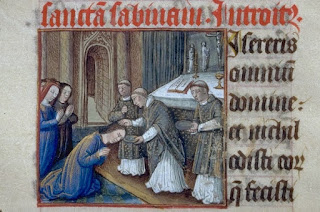 sanctam sabinam Introite.
Misereris
omnium
domine
et nichil
odisti eor
q̃ fecisti